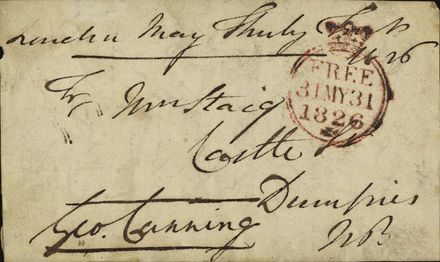 London May Thirty First
1826
FREE
31 MY 31
1826
Castle St
Dumfries
Geo. Canning
NB